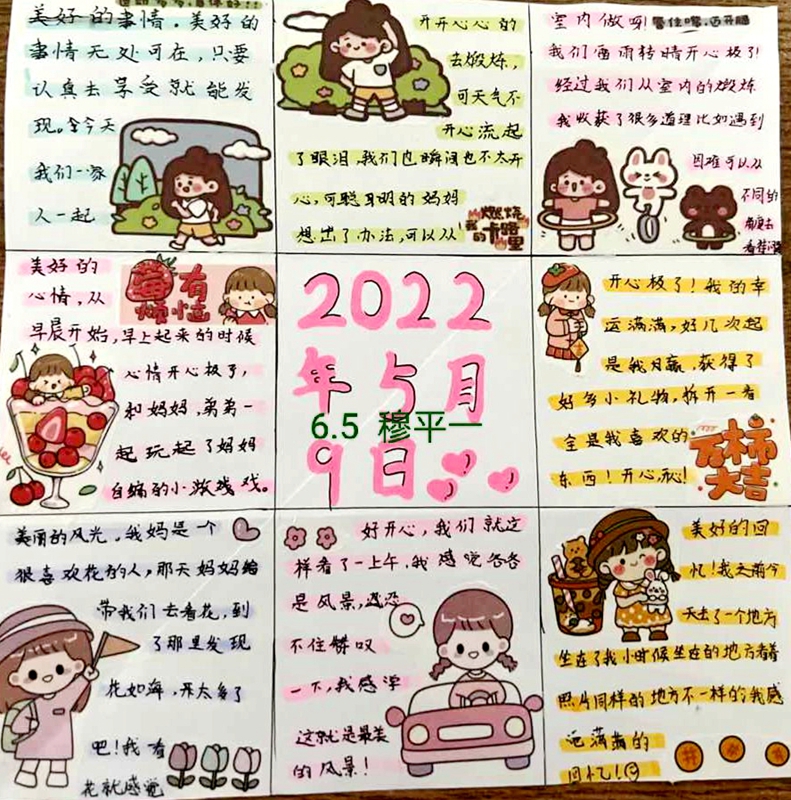 美好的事情。美好的
事情无处可在，只要
认真去享受就能发
现。今天
我们一家
人一起
开开心心的
去煅炼，
可天气不
开心流起
了眼泪，我们也瞬间也不太开
心，可聪明的妈妈
想出了办法，可以从
燃烧
我的
卡路里
室内做呀！管住嘴，迈开腿
我们雷雨转晴开心极了！
经过我们从室内的煅炼
我收获了很多道理比如遇到
困难可以从
不同的
角度去
看待问题
美好的
心情，从
早晨开始，早上起来的时候
心情开心极了，
和妈妈，弟弟一
起玩起了妈妈
自编的小游戏。
莓有
烦恼
2022
年5月
9日
6.5 穆平一
开心极了！我的幸
运满满，好几次起
是我月赢，获得了
好多小礼物，拆开一看
全是我喜欢的
东西！开心秋！
万柿
大吉
美丽的风光，我妈是一个
狠喜欢花的人，那天妈妈给
带我们去看花，到
了那里发现
花如海，开太多了
吧！我看
花就感觉
好开心，我们就这
样看了一上午，我感觉各各
是风景，
不住赞叹
一下，我感浮
这就是最美
的风景！
美好的回
忆！我之前今
天去了一个地方
坐在了我小时候坐在的地方看着
照片同样的地方不一样的我感
记满满的
回忆！